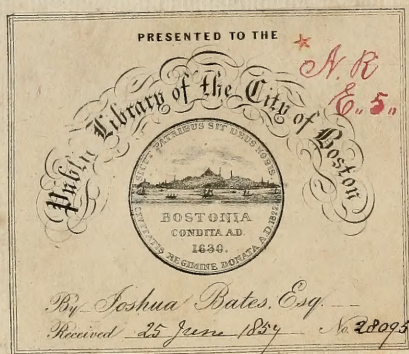 PRESENTED TO THE
N. R
E. 5.
Public Library of the City of Boston
SICUT PATRIBUS SIT DEUS NOBIS.
BOSTONIA
CONDITA A.D.
1630.
CIVITATIS REGIMINE DONATA A.D. 1822.
By Joshua Bates, Esq.
Received 25 June 1857 No. 28095